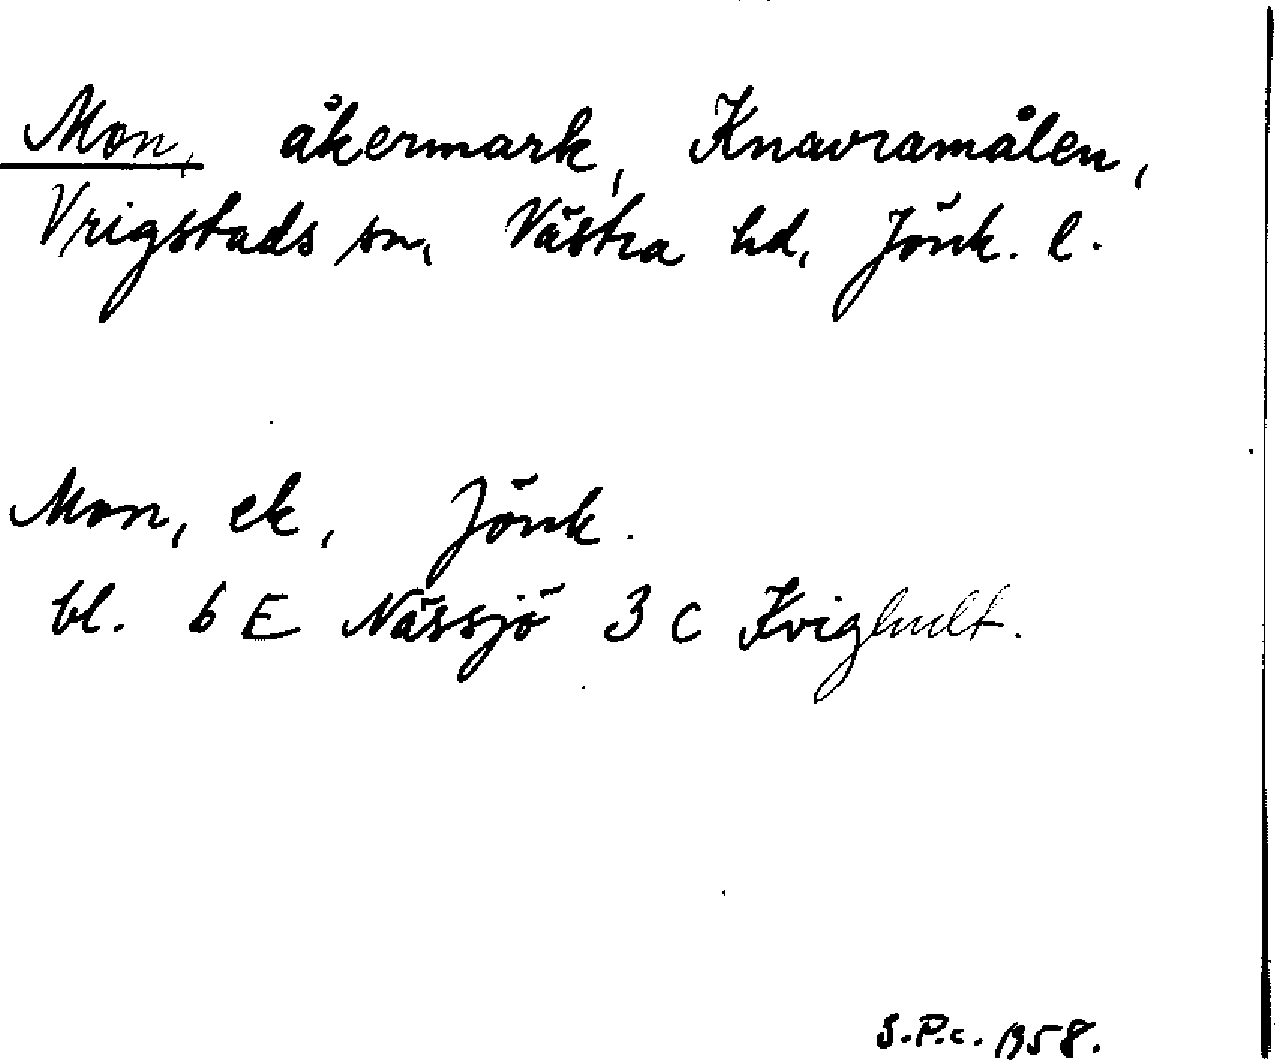 Mon, åkermark, Knavramålen,
Vrigstads sn, Västra hd, Jönk. l.
Mon, ek, Jönk.
bl. 6 E Nässjö 3 c Kvighult.
S.P.c. 1958.